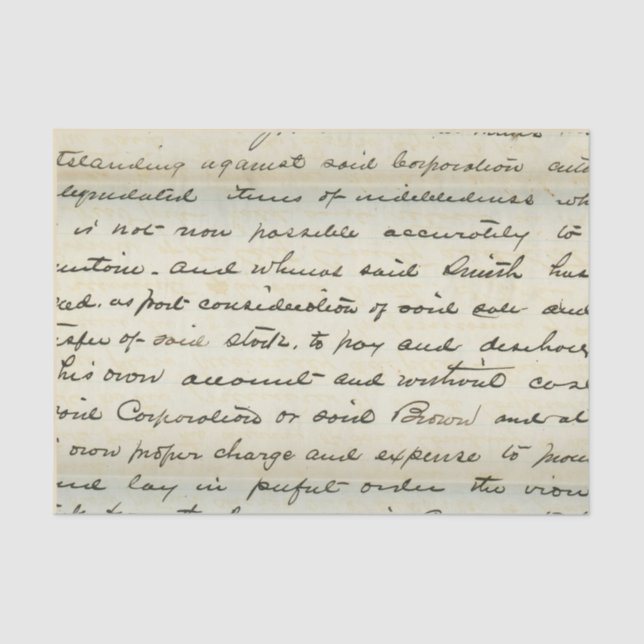 tstanding against said Corporation
liquidated items of indebtedness wh
is not now possible accurately to
and whereas said Smith has
as part consideration of said sale and
sfer of said stock, to pay and discharg
his own account and without cost
said Corporation or said Brown and at
own proper charge and expense to
lay in perfect order the